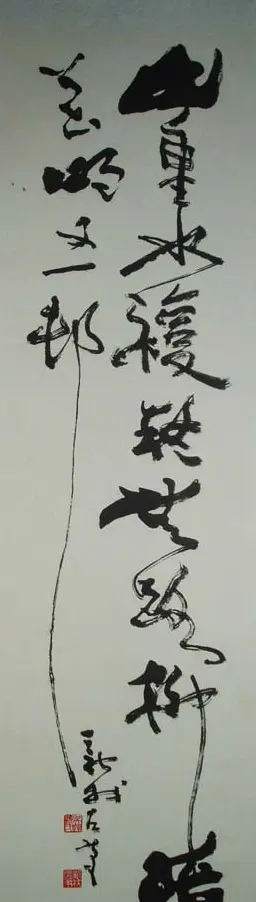 山重水複疑無路柳暗
花明又一邨